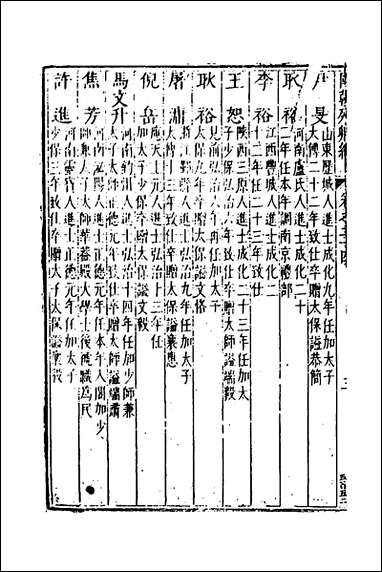 尹旻
山東歷城人進士成化九年任加太子
太傅二十二年致仕卒贈太保謚恭簡
耿裕
河南盧氏人進士成化二十
二年任本年調南京禮部
李裕
江西豐城人進士成化二
十二年任二十三年致仕
王恕
陝西三原人進士成化二十三年任加太
子少保弘治六年致仕卒贈太師謚端毅
耿裕
見前弘治六年再任加太子
太保九年卒贈太保謚文恪
屠滽
浙江鄞縣人進士弘治九年任加太子
太傅十三年致仕卒贈太保謚襄惠
倪岳
應天上元人進士弘治十三年任
加太子少保卒贈少保謚文毅
馬文升
河南鈞州人進士弘治十四年任加少師兼
太子太師正德元年致仕卒贈太師謚端肅
焦芳
河南泌陽人進士正德元年任本年入閣加少
師兼太子太師華蓋殿大學士後褫職為民
許進
河南靈寶人進士正德元年任加太子
少保三年致仕卒贈太子太保謚襄毅